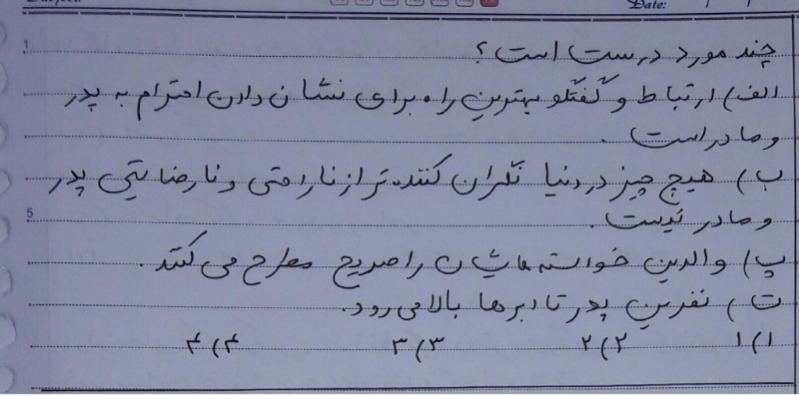 Date:
1
چند مورد درست است؟
الف) ارتباط و گفتگو بهترین راه برای نشان دادن احترام به پدر
و مادر است.
ب) هیچ چیز در دنیا نگران کننده‌تر از ناراحتی و نارضایتی پدر
5
و مادر نیست.
پ) والدین خواسته هایشان را صریح مطرح می کنند.
ت) نفرین پدر تا ابرها بالا می رود.
۱) ۱ ۲) ۲ ۳) ۳ ۴) ۴